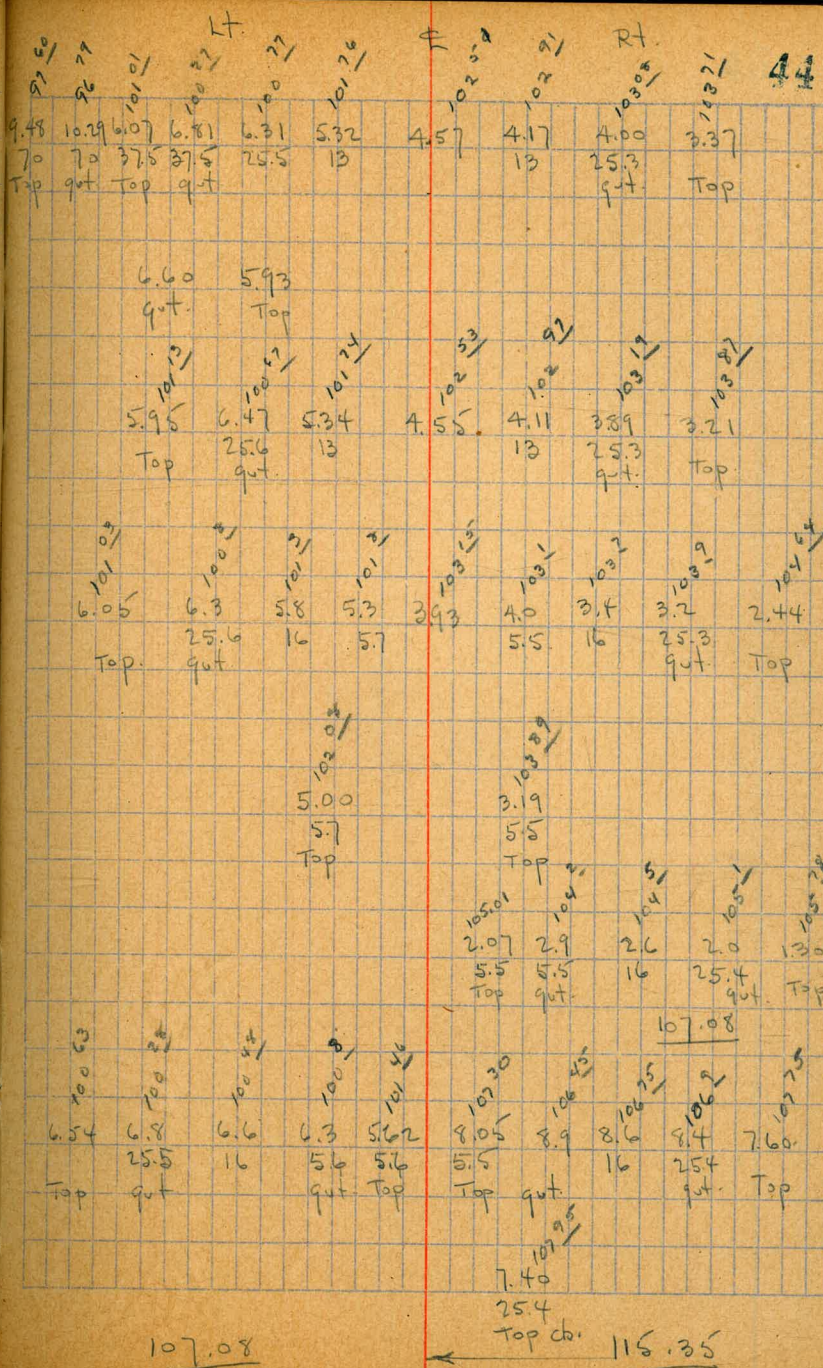 Lt. ℄ Rt. 44
97 60 96 79 101 01 100 27 100 77 101 76 102 51 102 91 103 08 103 71
9.48 10.29 6.07 6.81 6.31 5.32 4.57 4.17 4.00 3.37
70 70 37.5 37.5 25.5 13 13 25.3
Top gut Top gut gut. Top
6.60 5.93
gut. Top
101 13 100 67 101 74 102 53 102 97 103 19 103 87
5.95 6.47 5.34 4.55. 4.11 3.89 3.21
25.6 13 13 25.3
Top gut. gut. Top
101 03 100 8 101 3 101 8 103 15 103 1 103 7 103 9 104 64
6.05 6.3 5.8 5.3 3.93 4.0 3.4 3.2 2.44
25.6 16 5.7 5.5 16 25.3
Top. gut gut Top
102 08 103 89
5.00 3.19
5.7 5.5
Top Top
105.01 104 2 104 5 105 1 105 78
2.07 2.9 2.6 2.0 1.30
5.5 5.5 16 25.4
Top gut. gut. Top
107.08
100 63 100 28 100 48 100 8 101 46 107 30 106 45 106 75 106 9 107 75
6.54 6.8 6.6 6.3 5.62 8.05 8.9 8.6 8.4 7.60
25.5 16 5.6 5.6 5.5 16 25.4
Top gut gut Top Top gut. gut. Top
107 95
7.40
25.4
Top cb.
107.08 115.35